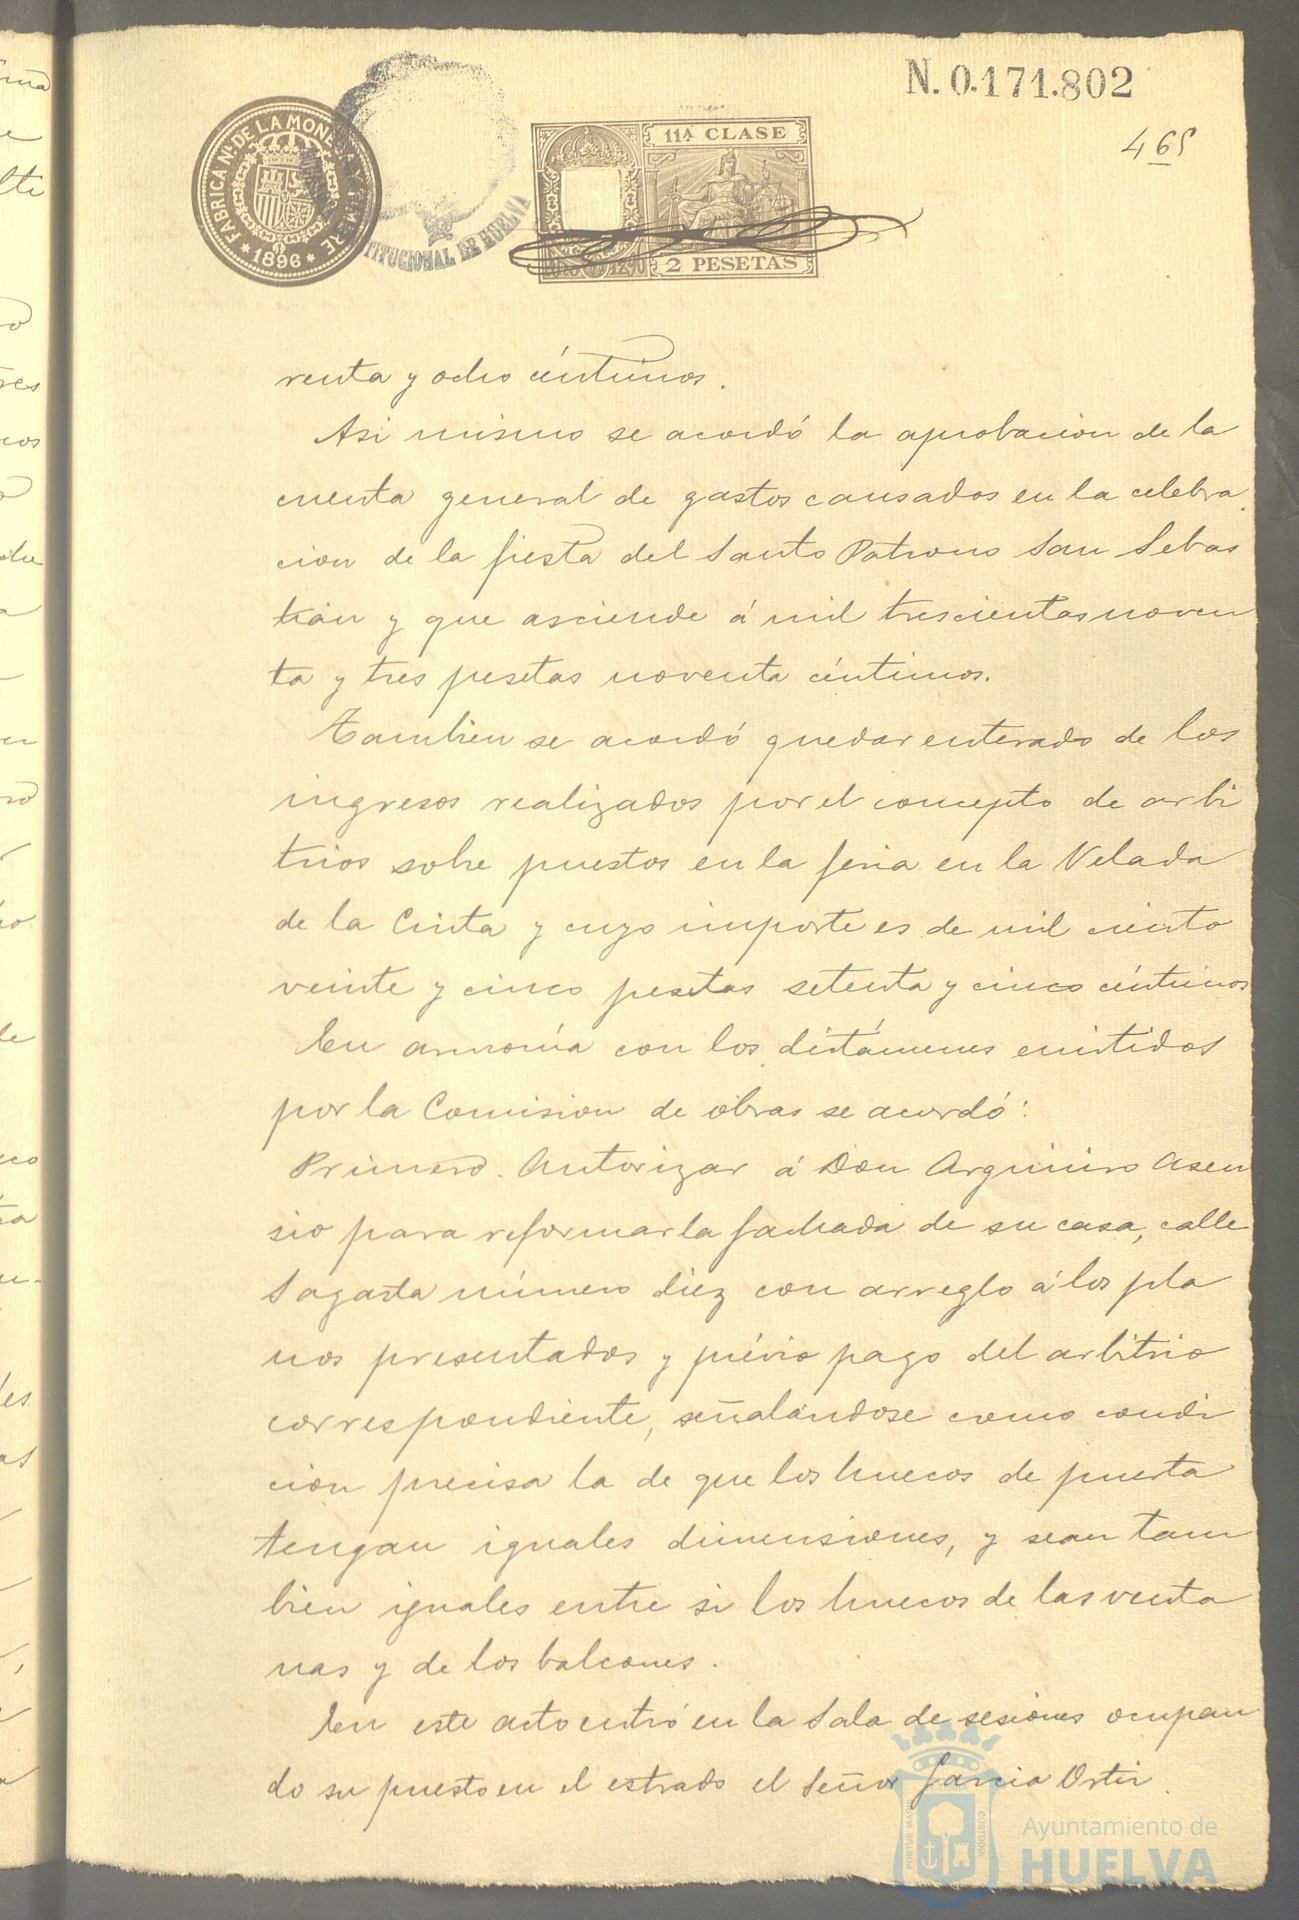 N. 0.171.802
465
FABRICA Nal. DE LA MONEDA Y TIMBRE
* 1896 *
TITUCIONAL DE HUELVA
11ª CLASE
2 PESETAS
renta y ocho céntimos.
Asi mismo se acordó la aprobacion de la
cuenta general de gastos causados en la celebra
cion de la fiesta del Santo Patrono San Sebas
tián y que asciende á mil trescientas noven
ta y tres pesetas noventa céntimos.
Tambien se acordó quedar enterado de los
ingresos realizados por el concepto de arbi
trios sobre puestos en la feria en la Velada
de la Cinta y cuyo importe es de mil ciento
veinte y cinco pesetas setenta y cinco céntimos
En armonía con los dictámenes emitidos
por la Comision de obras se acordó:
Primero. Autorizar á Don Argimiro Asen
sio para reformar la fachada de su casa, calle
Sagasta número diez con arreglo á los pla
nos presentados y prévio pago del arbitrio
correspondiente, señalándose como condi
cion precisa la de que los huecos de puerta
tengan iguales dimensiones, y sean tam
bien iguales entre si los huecos de las venta
nas y de los balcones.
En este acto entró en la Sala de sesiones ocupan
do su puesto en el estrado el Señor Garcia Ortiz
PORTUS MARIS
CUSTODIA
Ayuntamiento de
HUELVA